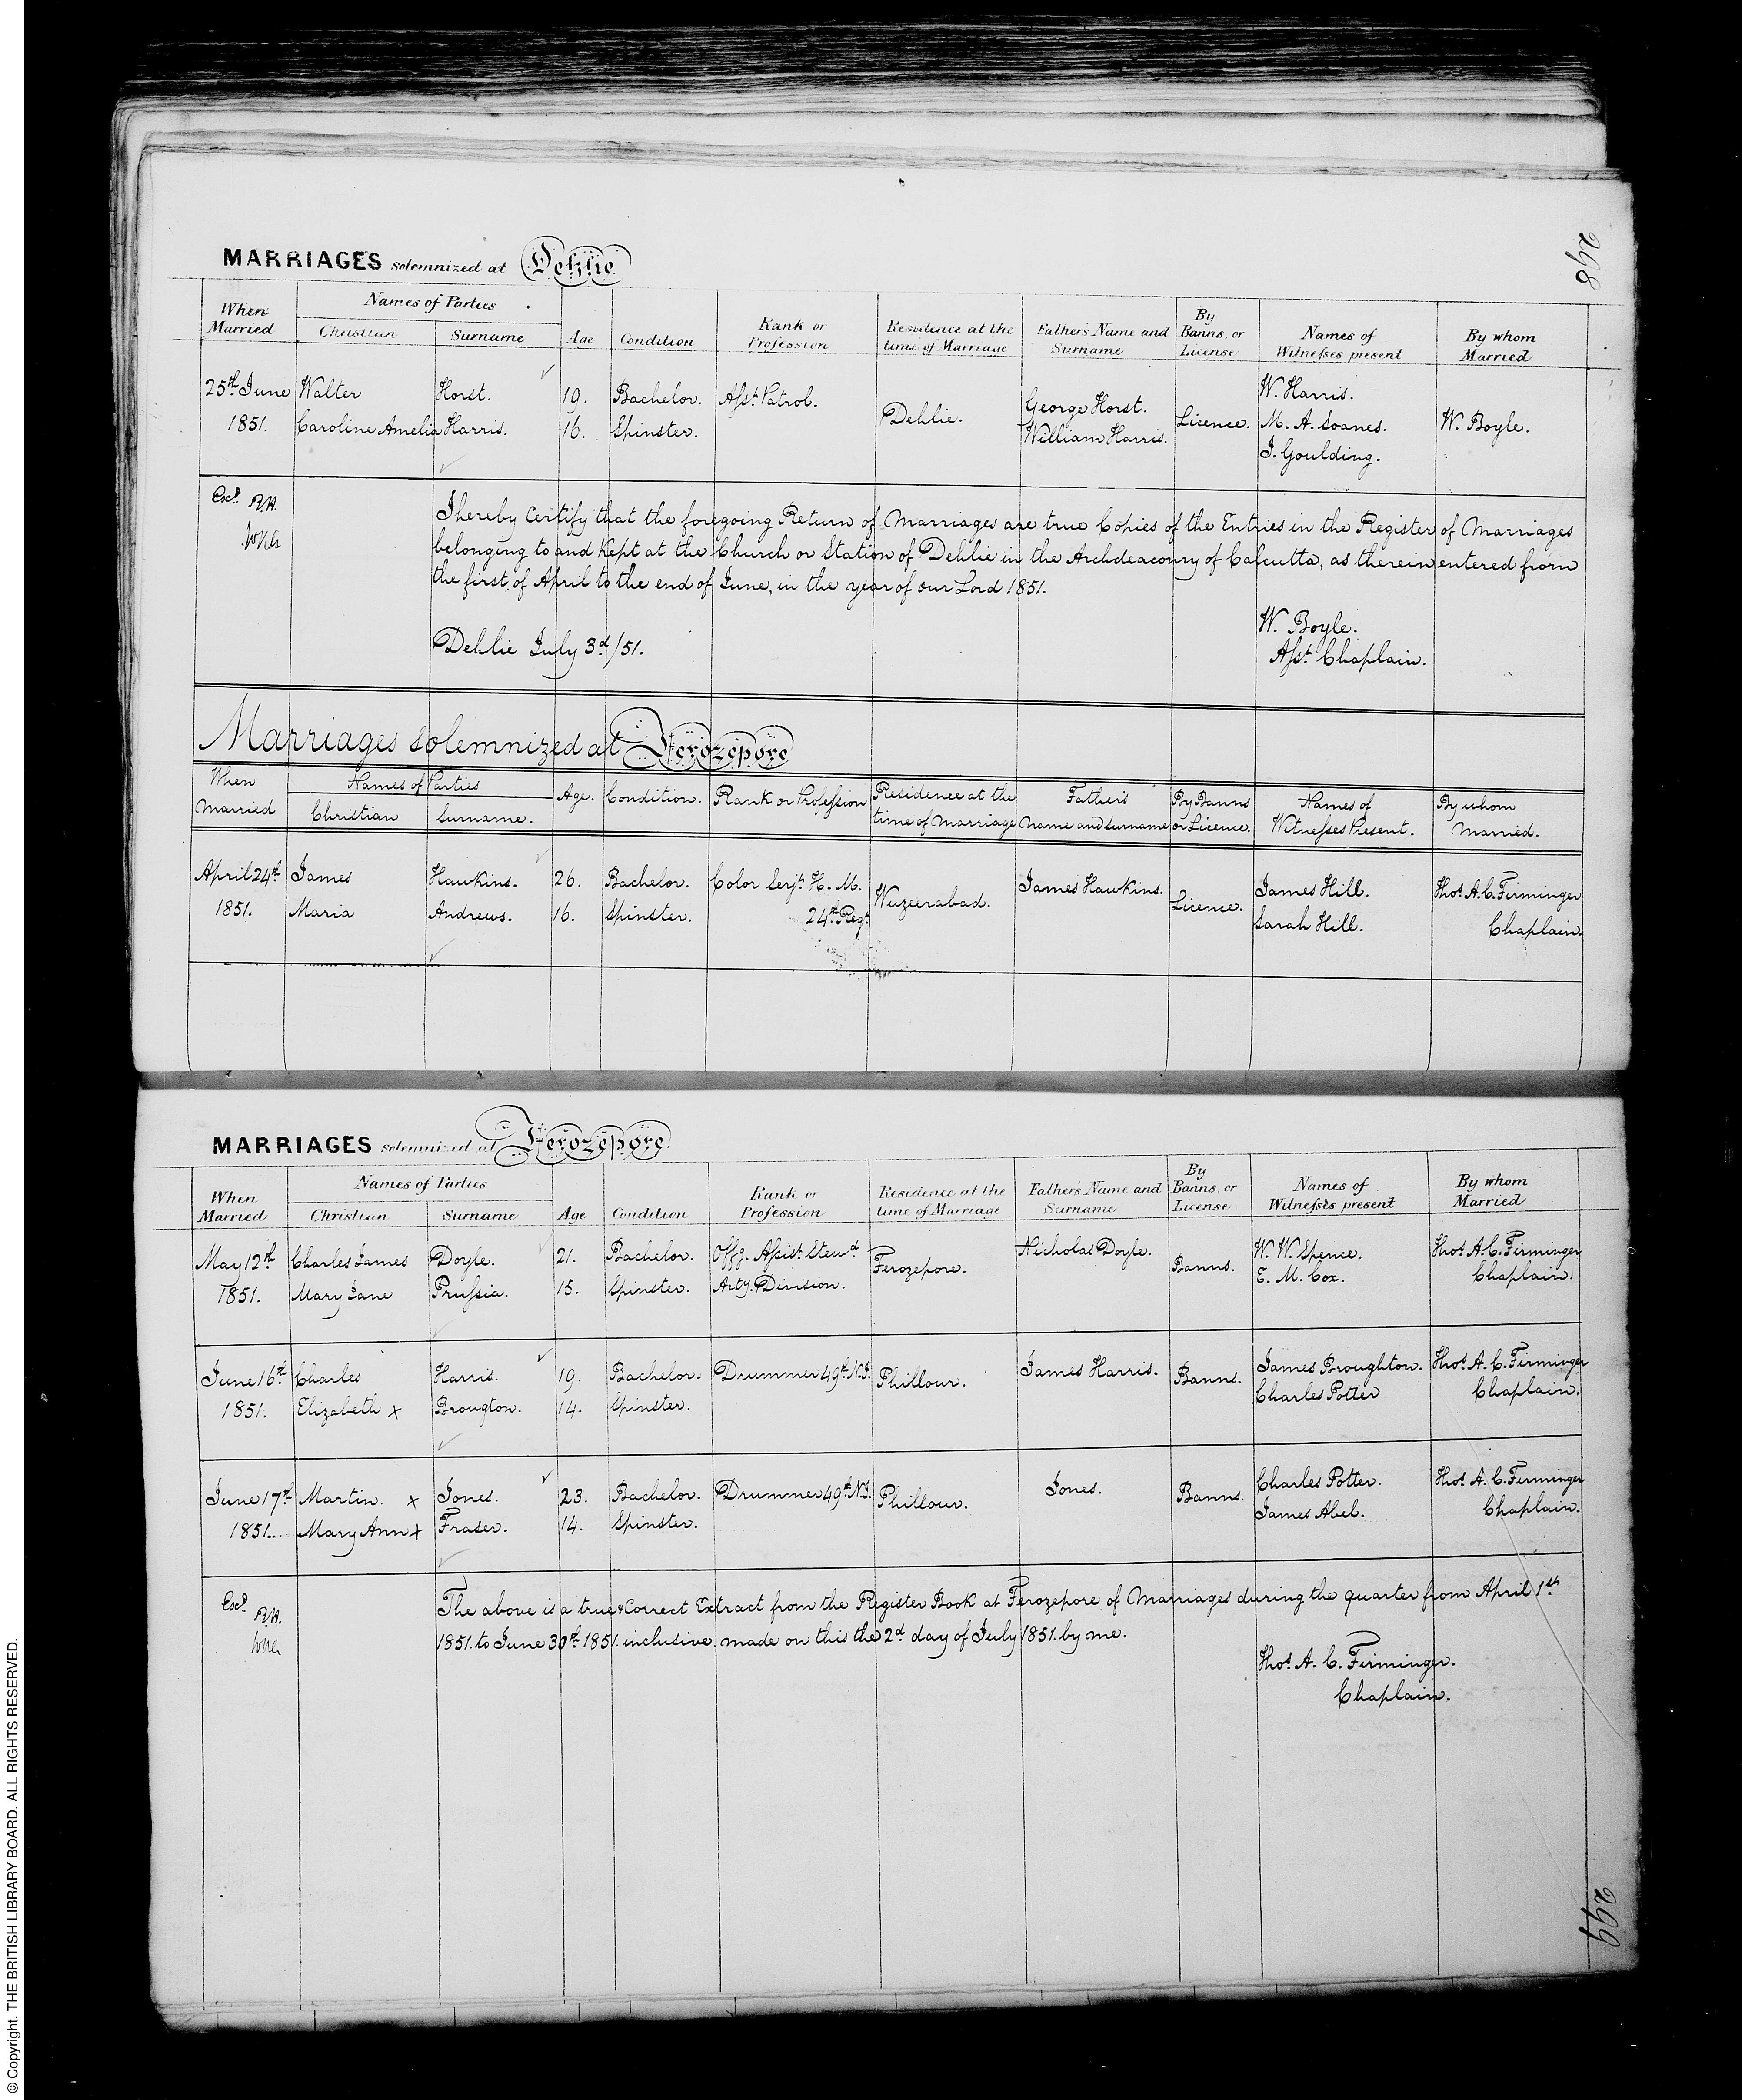 298
MARRIAGES solemnized at Dehlie
When Married
Names of Parties
Christian
Surname
Age
Condition
Rank or Profession
Residence at the time of Marriage
Father's Name and Surname
By Banns, or License
Names of Witnesses present
By whom Married
25th June 1851.
Walter Horst. 19. Bachelor. Asst. Patrol.
Caroline Amelia Harris. 16. Spinster.
Dehlie.
George Horst.
William Harris.
Licence.
W. Harris.
M. A. Soanes.
J. Goulding.
W. Boyle.
I hereby certify that the foregoing Return of Marriages are true Copies of the Entries in the Register of Marriages
belonging to and Kept at the Church or Station of Dehlie in the Archdeaconry of Calcutta, as therein entered from
the first of April to the end of June, in the year of our Lord 1851.
Dehlie July 3d/51.
W. Boyle.
Asst. Chaplain.
Marriages Solemnized at Ferozepore
When Married
Names of Parties
Christian
Surname.
Age.
Condition.
Rank or Profession
Residence at the time of Marriage
Father's Name and Surname
By Banns or Licence.
Names of Witnesses Present.
By whom Married.
April 24th 1851.
James Hawkins. 26. Bachelor. Color Serjt. H. M. 24th Regt.
Maria Andrews. 16. Spinster.
Wuzeerabad.
James Hawkins.
Licence.
James Hill.
Sarah Hill.
Thos. A. C. Firminger
Chaplain.
MARRIAGES solemnized at Ferozepore
When Married
Names of Parties
Christian
Surname
Age
Condition
Rank or Profession
Residence at the time of Marriage
Father's Name and Surname
By Banns, or License
Names of Witnesses present
By whom Married
May 12th 1851.
Charles James Doyle. 21. Bachelor. Offg. Assist. Stewd
Mary Jane Prussia. 15. Spinster. Arty. Division.
Ferozepore.
Nicholas Doyle.
Banns.
W. W. Spence.
E. M. Cox.
Thos. A. C. Firminger
Chaplain.
June 16th 1851.
Charles Harris. 19. Bachelor. Drummer 49th N.I.
Elizabeth x Brougton. 14. Spinster.
Phillour.
James Harris.
Banns.
James Broughton.
Charles Potter
Thos. A. C. Firminger
Chaplain.
June 17th 1851.
Martin. x Jones. 23. Bachelor. Drummer 49th N.I.
Mary Ann x Fraser. 14. Spinster.
Phillour.
Jones.
Banns.
Charles Potter.
James Abel.
Thos. A. C. Firminger
Chaplain.
The above is a true & Correct Extract from the Register Book at Ferozepore of Marriages during the quarter from April 1st
1851. to June 30th 1851. inclusive, made on this the 2d day of July 1851. by me.
Thos. A. C. Firminger.
Chaplain.
299
© Copyright. THE BRITISH LIBRARY BOARD. ALL RIGHTS RESERVED.